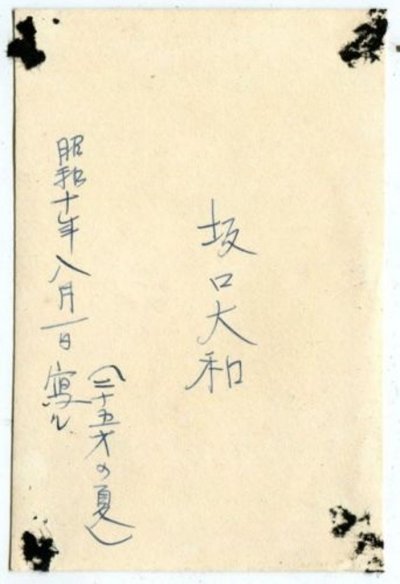 坂口大和
昭和十年八月一日寫ル
（二十五才の夏）